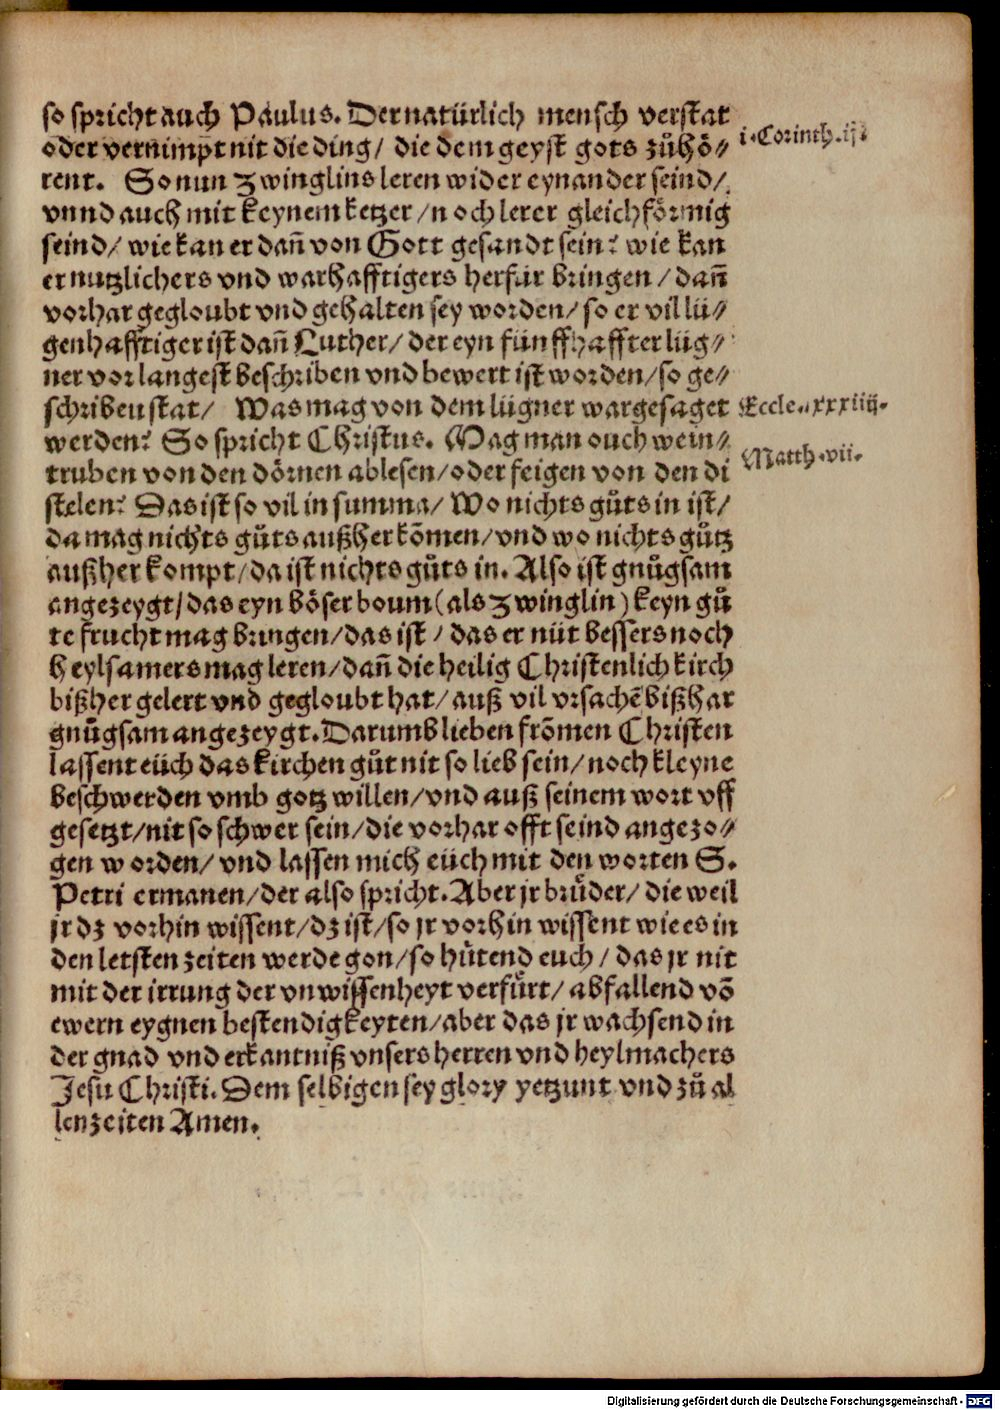 so spricht auch Paulus. Der natürlich mensch verstat
oder vernimpt nit die ding/ die dem geyst gots zůhö⸗
i. Corinth. ij.
rent. So nun Zwinglins leren wider eynander seind/
vnnd auch mit keynem ketzer/ noch lerer gleichförmig
seind/ wie kan er dañ von Gott gesandt sein? wie kan
er nutzlichers vnd warhafftigers herfür bringen/ dañ
vorhar gegloubt vnd gehalten sey worden/ so er vil lü⸗
genhafftiger ist dañ Luther/ der eyn fünffhaffter lüg⸗
ner vor langest beschriben vnd bewert ist worden/ so ge⸗
schriben stat/ Was mag von dem lügner war gesaget
Eccle. xxxiiij.
werden? So spricht Christus. Mag man ouch wein⸗
Matth. vii.
truben von den dörnen ablesen/ oder feigen von den di
stelen? Das ist so vil in summa/ Wo nichts gůts in ist/
da mag nichts gůts außher kõmen/ vnd wo nichts gůtz
außher kompt/ da ist nichts gůts in. Also ist gnůgsam
angezeygt/ das eyn böser boum (als Zwinglin) keyn gů
te frucht mag bringen/ das ist/ das er nüt bessers noch
heylsamers mag leren/ dañ die heilig Christenlich kirch
bißher gelert vnd gegloubt hat/ auß vil vrsachẽ bißhar
gnůgsam angezeygt. Darumb lieben frõmen Christen
lassent eüch das kirchen gůt nit so lieb sein/ noch kleyne
beschwerden vmb gotz willen/ vnd auß seinem wort vff
gesetzt/ nit so schwer sein/ die vorhar offt seind angezo⸗
gen worden/ vnd lassen mich eüch mit den worten S.
Petri ermanen/ der also spricht. Aber jr brüder/ die weil
jr dz vorhin wissent/ dz ist/ so jr vorhin wissent wie es in
den letsten zeiten werde gon/ so hütend euch/ das jr nit
mit der irrung der vnwissenheyt verfürt/ abfallend võ
ewern eygnen bestendigkeyten/ aber das jr wachsend in
der gnad vnd erkantniß vnsers herren vnd heylmachers
Jesu Christi. Dem selbigen sey glory yetzunt vnd zů al
len zeiten Amen.
Digitalisierung gefördert durch die Deutsche Forschungsgemeinschaft - DFG